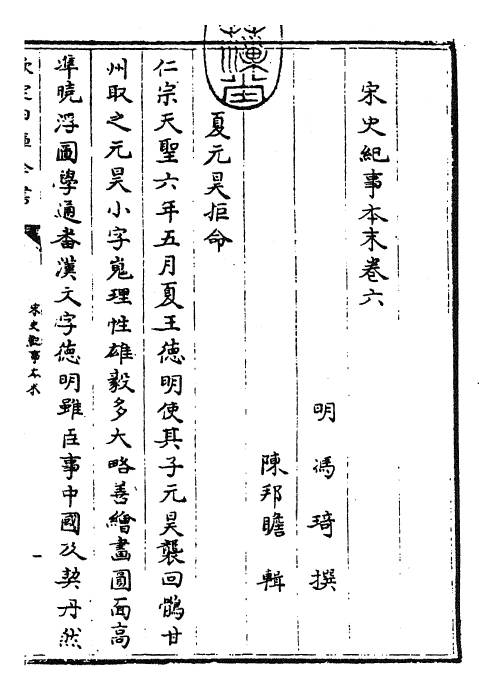 宋史紀事本末卷六
明 馮琦 撰
陳邦瞻 輯
夏元昊拒命
仁宗天聖六年五月夏王徳明使其子元昊襲回鶻甘
州取之元昊小字嵬理性雄毅多大略善繪畫圓面髙
準曉浮圖學通畨漢文字徳明雖臣事中國及契丹然
宋史紀事本末
一